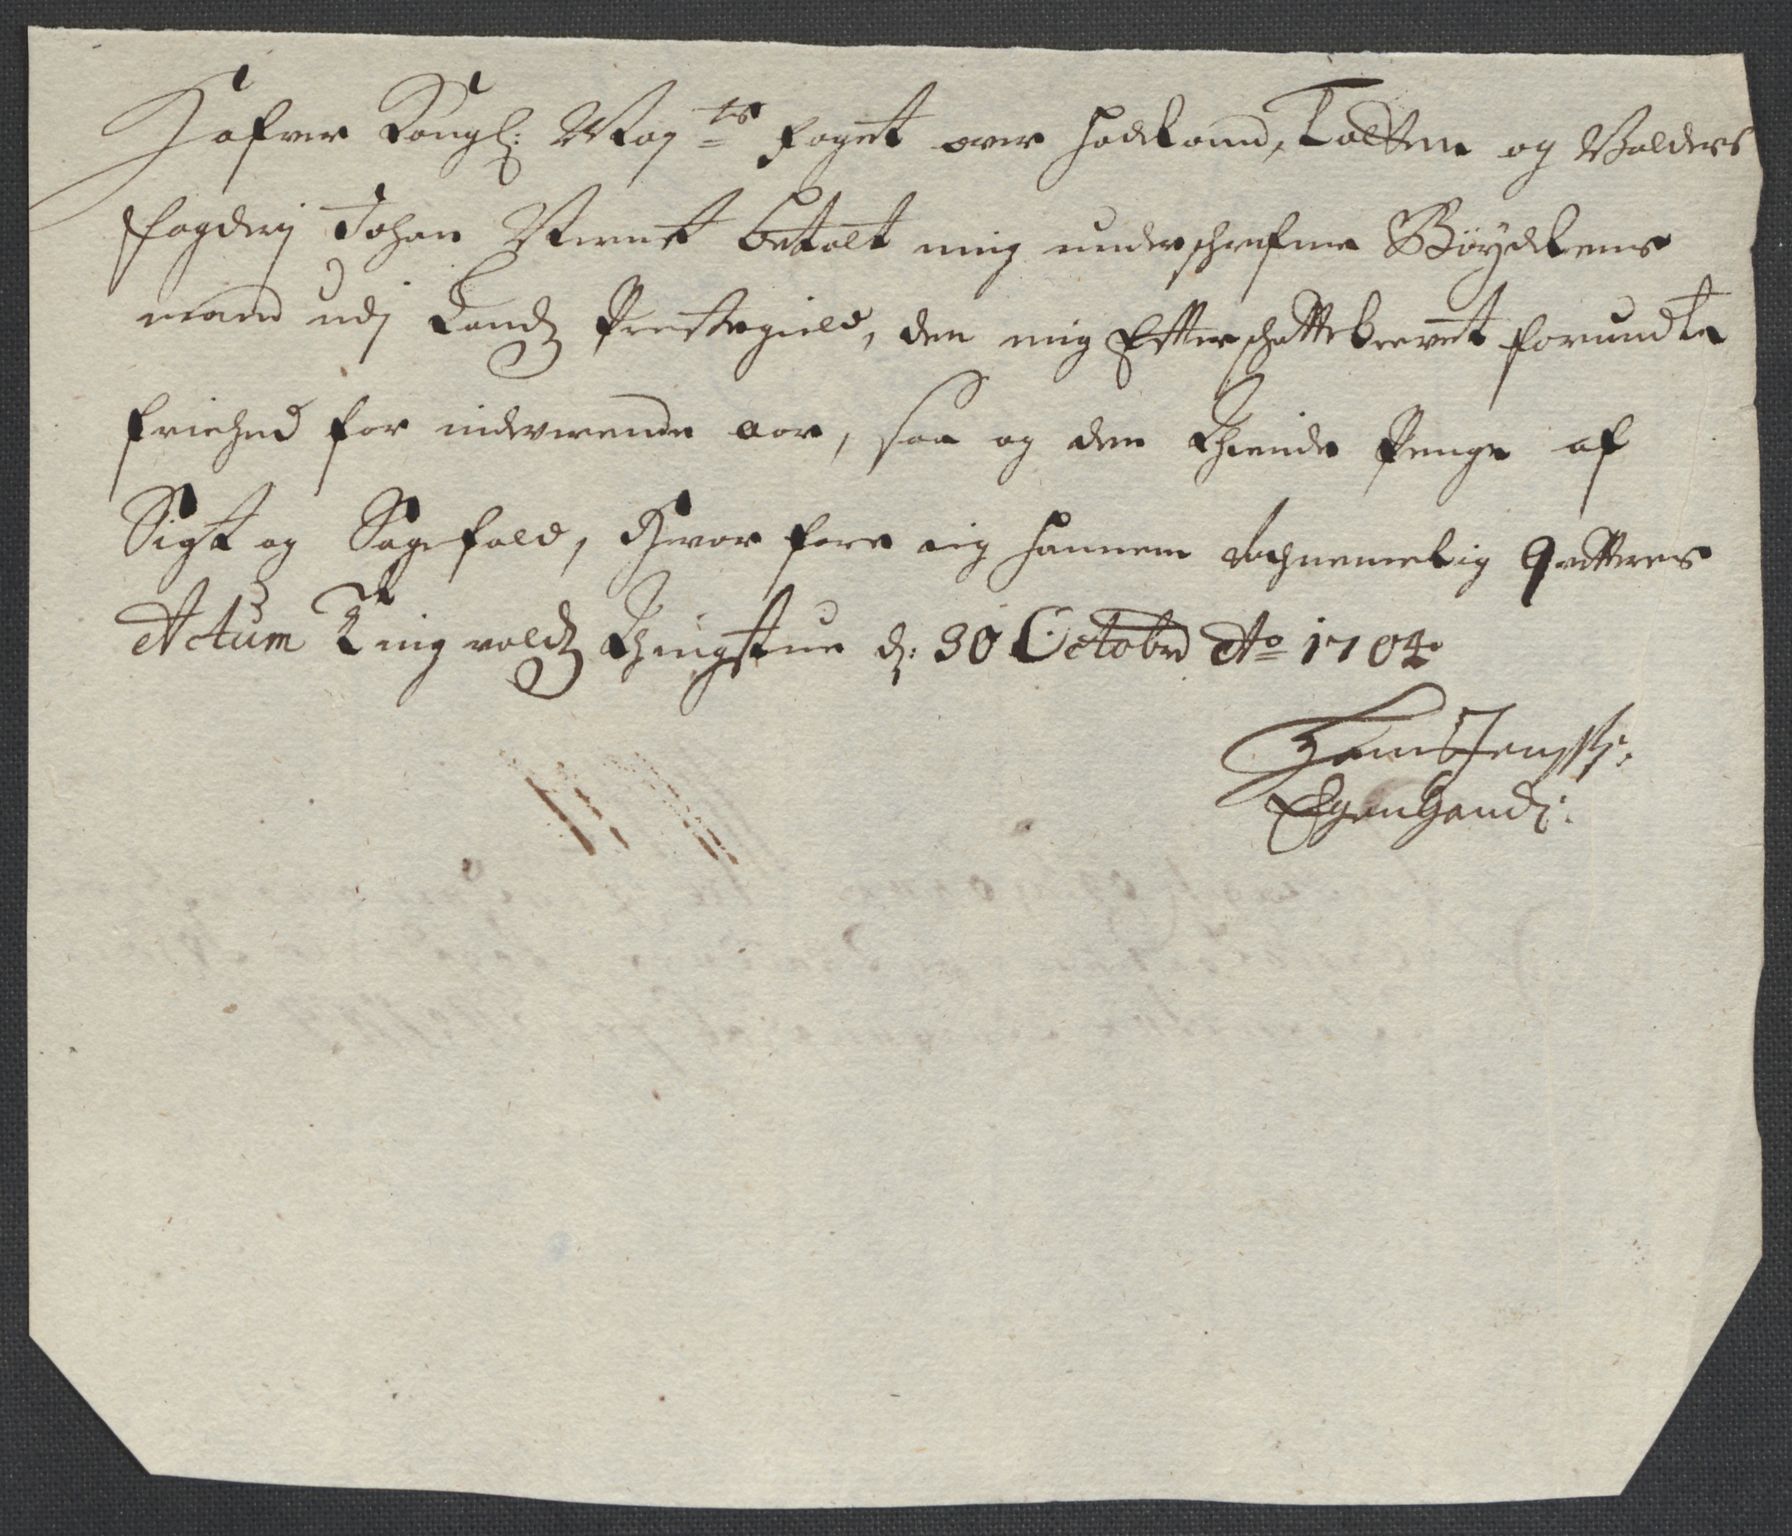 Hafver Kongl: May:ts foget over Hadeland, Totten og Valders
fogderj Johan betalt mig underschrefne Böydelens
mand udj Landz Prestegield, den mig Efter schattebrevet forundte
friehed for indverende aar, saa og den thiende Penge af
Sigt og Sagefald, Hvor fore ieg hannem tachnemelig Qvitteres
Actum Ting volds thingstue d: 30 Octobr Ao 1704
Hans Jenss:
Egenhand: